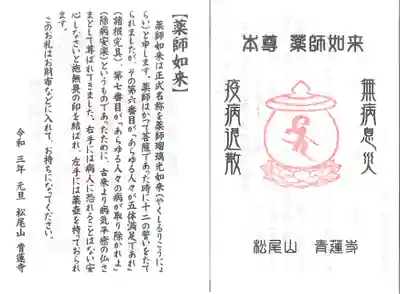 【薬師如来】
薬師如来は正式名称を薬師瑠璃光如来(やくしるりこうにょ
らい)と申します。薬師はかつて菩薩であった時に十二の誓いをたて
られましたが、その第六番目が「あらゆる人々が五体満足であれ」
(諸根完具)第七番目が「あらゆる人々の病が取り除かれよ」
(除病安楽)というものであったために、古来より病気平癒の仏さ
まとして尊ばれてきました。右手には病人に恐れることはない安
心しなさいと施無畏の印を結ばれ、左手には薬壺を持っておられ
ます。
このお札はお財布などに入れて、お持ちになってください。
令和三年 元旦 松尾山 青蓮寺
本尊 薬師如来
無病息災
疫病退散
松尾山 青蓮寺